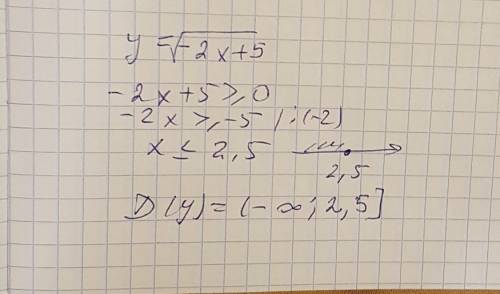 y = √-2x+5
-2x+5 ≥ 0
-2x ≥ -5 / : (-2)
x ≤ 2,5
2,5
D(y) = (-∞; 2,5]